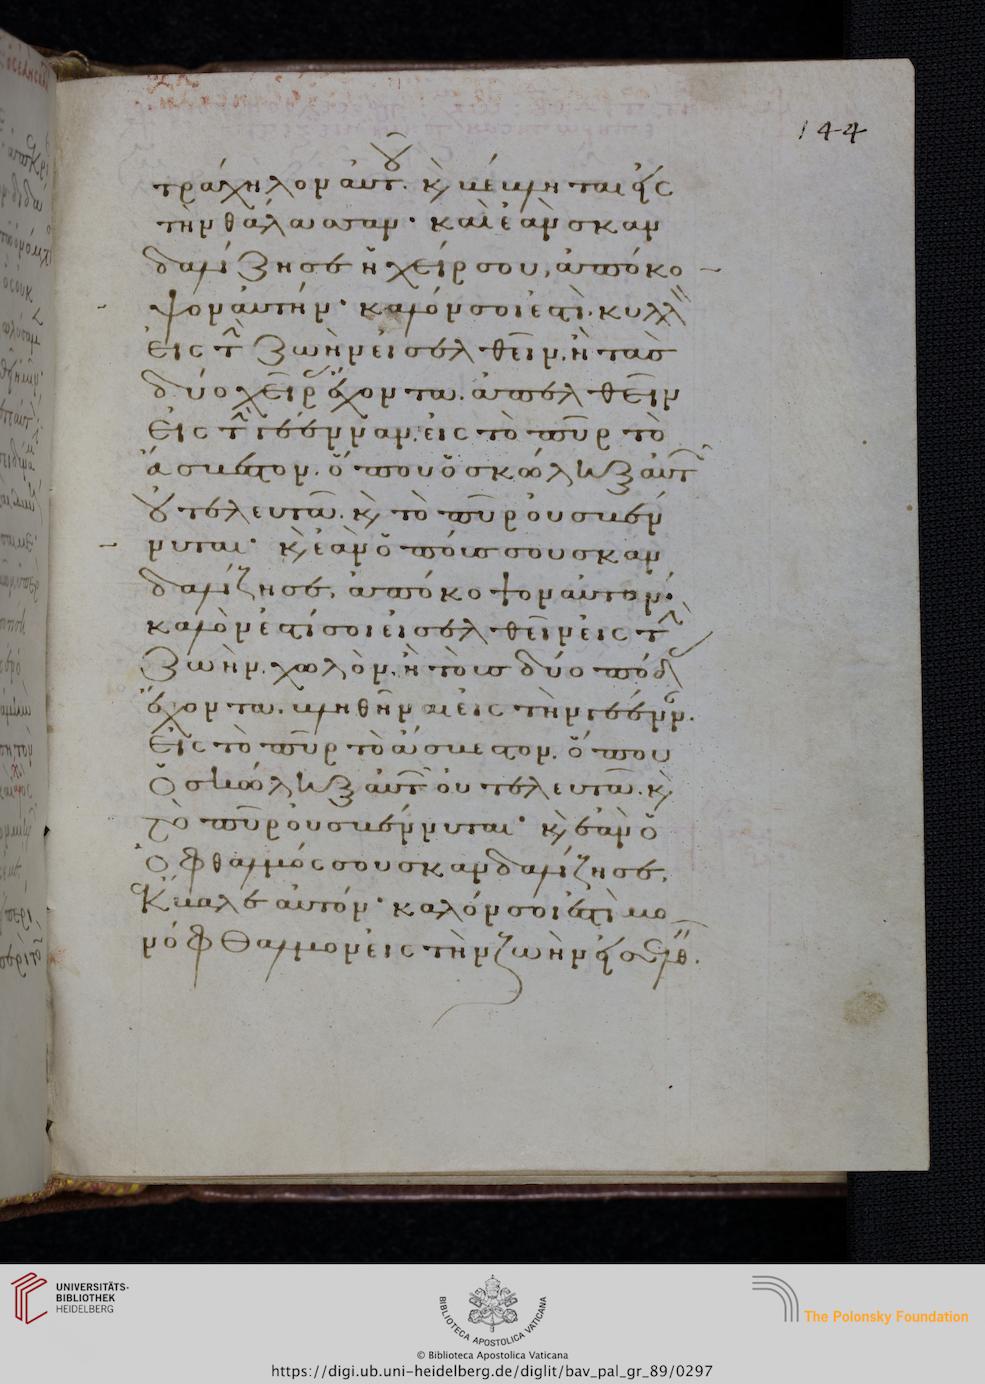 144
τράχηλον αὐτοῦ. κ(αὶ) βέβληται εἰς
τὴν θάλασσαν· καὶ ἐὰν σκαν
δαλίζησε ἡ χείρ σου, ἀπόκο
ψον αὐτήν· καλόν σοι ἐστὶ. κυλλὸν
εἰς τὴν ζωὴν εἰσελθεῖν, ἢ τὰς
δύο χεῖρας ἔχοντα. ἀπελθεῖν
εἰς τὴν γέενναν. εἰς τὸ πῦρ τὸ
ἄσβεστον. ὅπου ὁ σκώληξ αὐτῶν
οὐ τελευτᾶ. κ(αὶ) τὸ πῦρ οὐ σβέν
νυται· κ(αὶ) ἐὰν ὁ πούς σου σκαν
δαλίζησε, ἀπόκοψον αὐτόν·
καλόν ἐστί σοι εἰσελθεῖν εἰς τὴν
ζωὴν. χωλὸν. ἢ τοὺς δύο πόδας
ἔχοντα. βληθῆναι εἰς τὴν γέενναν.
εἰς τὸ πῦρ τὸ ἄσβεστον. ὅπου
ὁ σκώληξ αὐτῶν οὐ τελευτᾶ. κ(αὶ)
τὸ πῦρ οὐ σβέννυται· κ(αὶ) ἐὰν ὁ
ὀφθαλμός σου σκανδαλίζησε,
ἔκβαλε αὐτόν· καλόν σοι ἐστὶ μο
νόφθαλμον εἰς τὴν ζωὴν
UNIVERSITÄTS-
BIBLIOTHEK
HEIDELBERG
BIBLIOTECA APOSTOLICA VATICANA
The Polonsky Foundation
© Biblioteca Apostolica Vaticana
https://digi.ub.uni-heidelberg.de/diglit/bav_pal_gr_89/0297